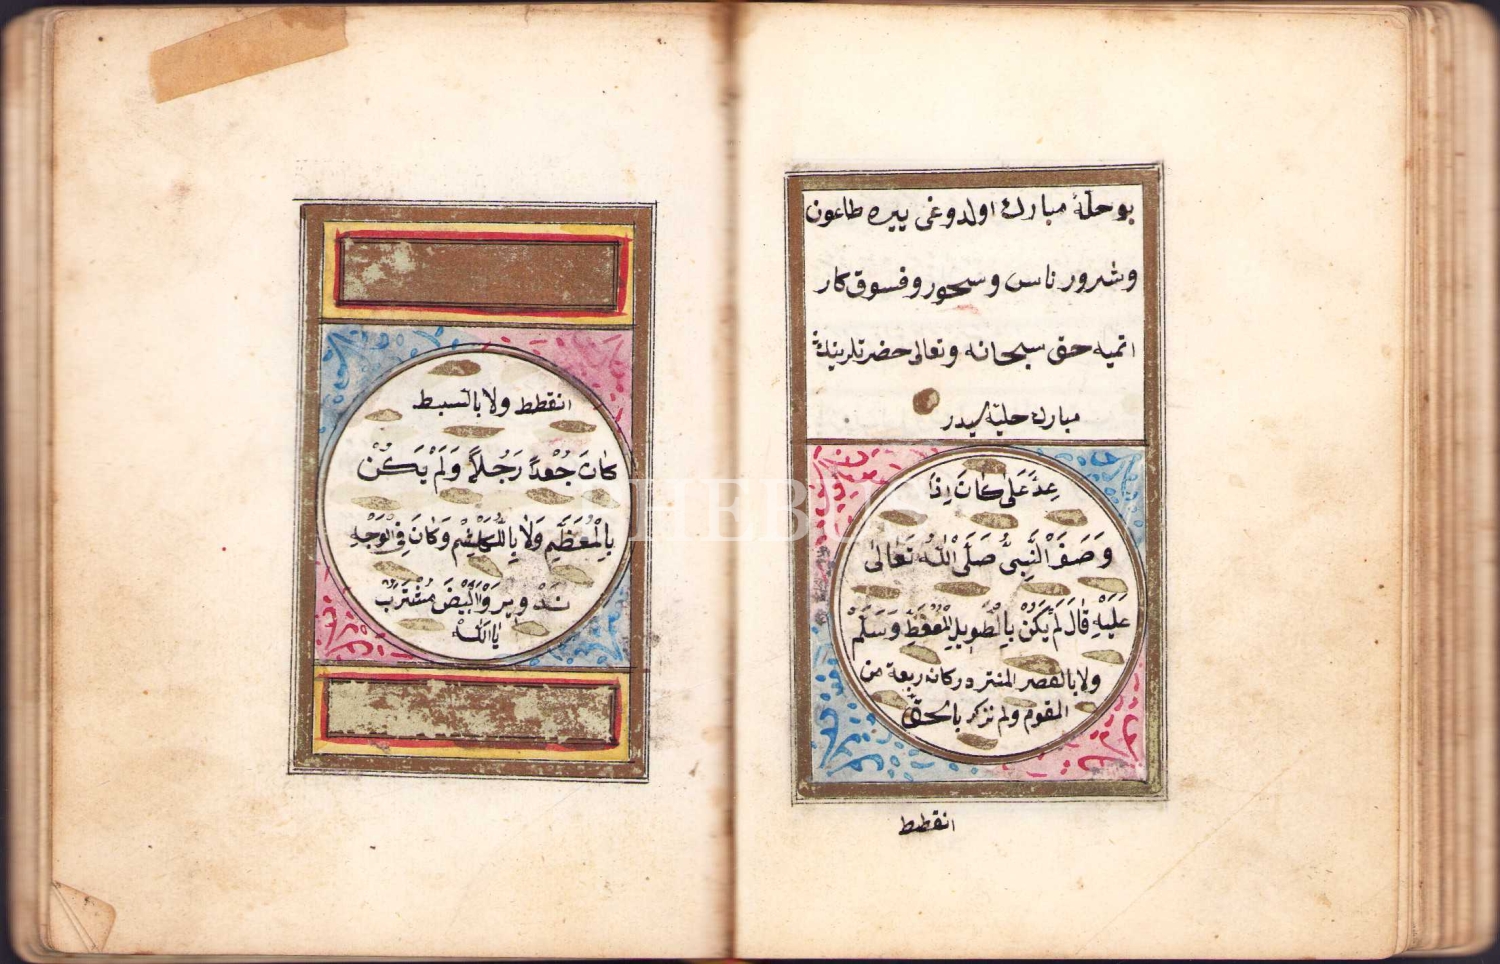 بو حلیهٔ مبارك اولدوغی ییره طاعون
وشرور ناس وسحور وفسوق كار
اتمیه حق سبحانه وتعالی حضرتلرینك
مبارك حلیهٔ سیدر
عِدَّ عَلی كَانَ اِذَا
وَصَفَ النَّبِیُّ صَلَّی اللهُ تَعَالٰی
عَلَیْهِ قَالَ لَمْ یَكُنْ بِالطَّوِیلِ الْمُمَغَّطِ وَسَلَّمْ
ولا بالقصر المتردد كان ربعة من
القوم ولم
انقطط
انقطط ولا بالسبط
كانَ جُعْداً رَجُلاً وَلَمْ یَكُنْ
بِالْمُعَظَّمِ وَلَا بِالْمُكَلْثَمْ وَكَانَ فِی الْوَجْهِ
تَدْویر وَاَبْیَضَ مُشْرَبٌ
یَا اَللّٰه
KHEBUS